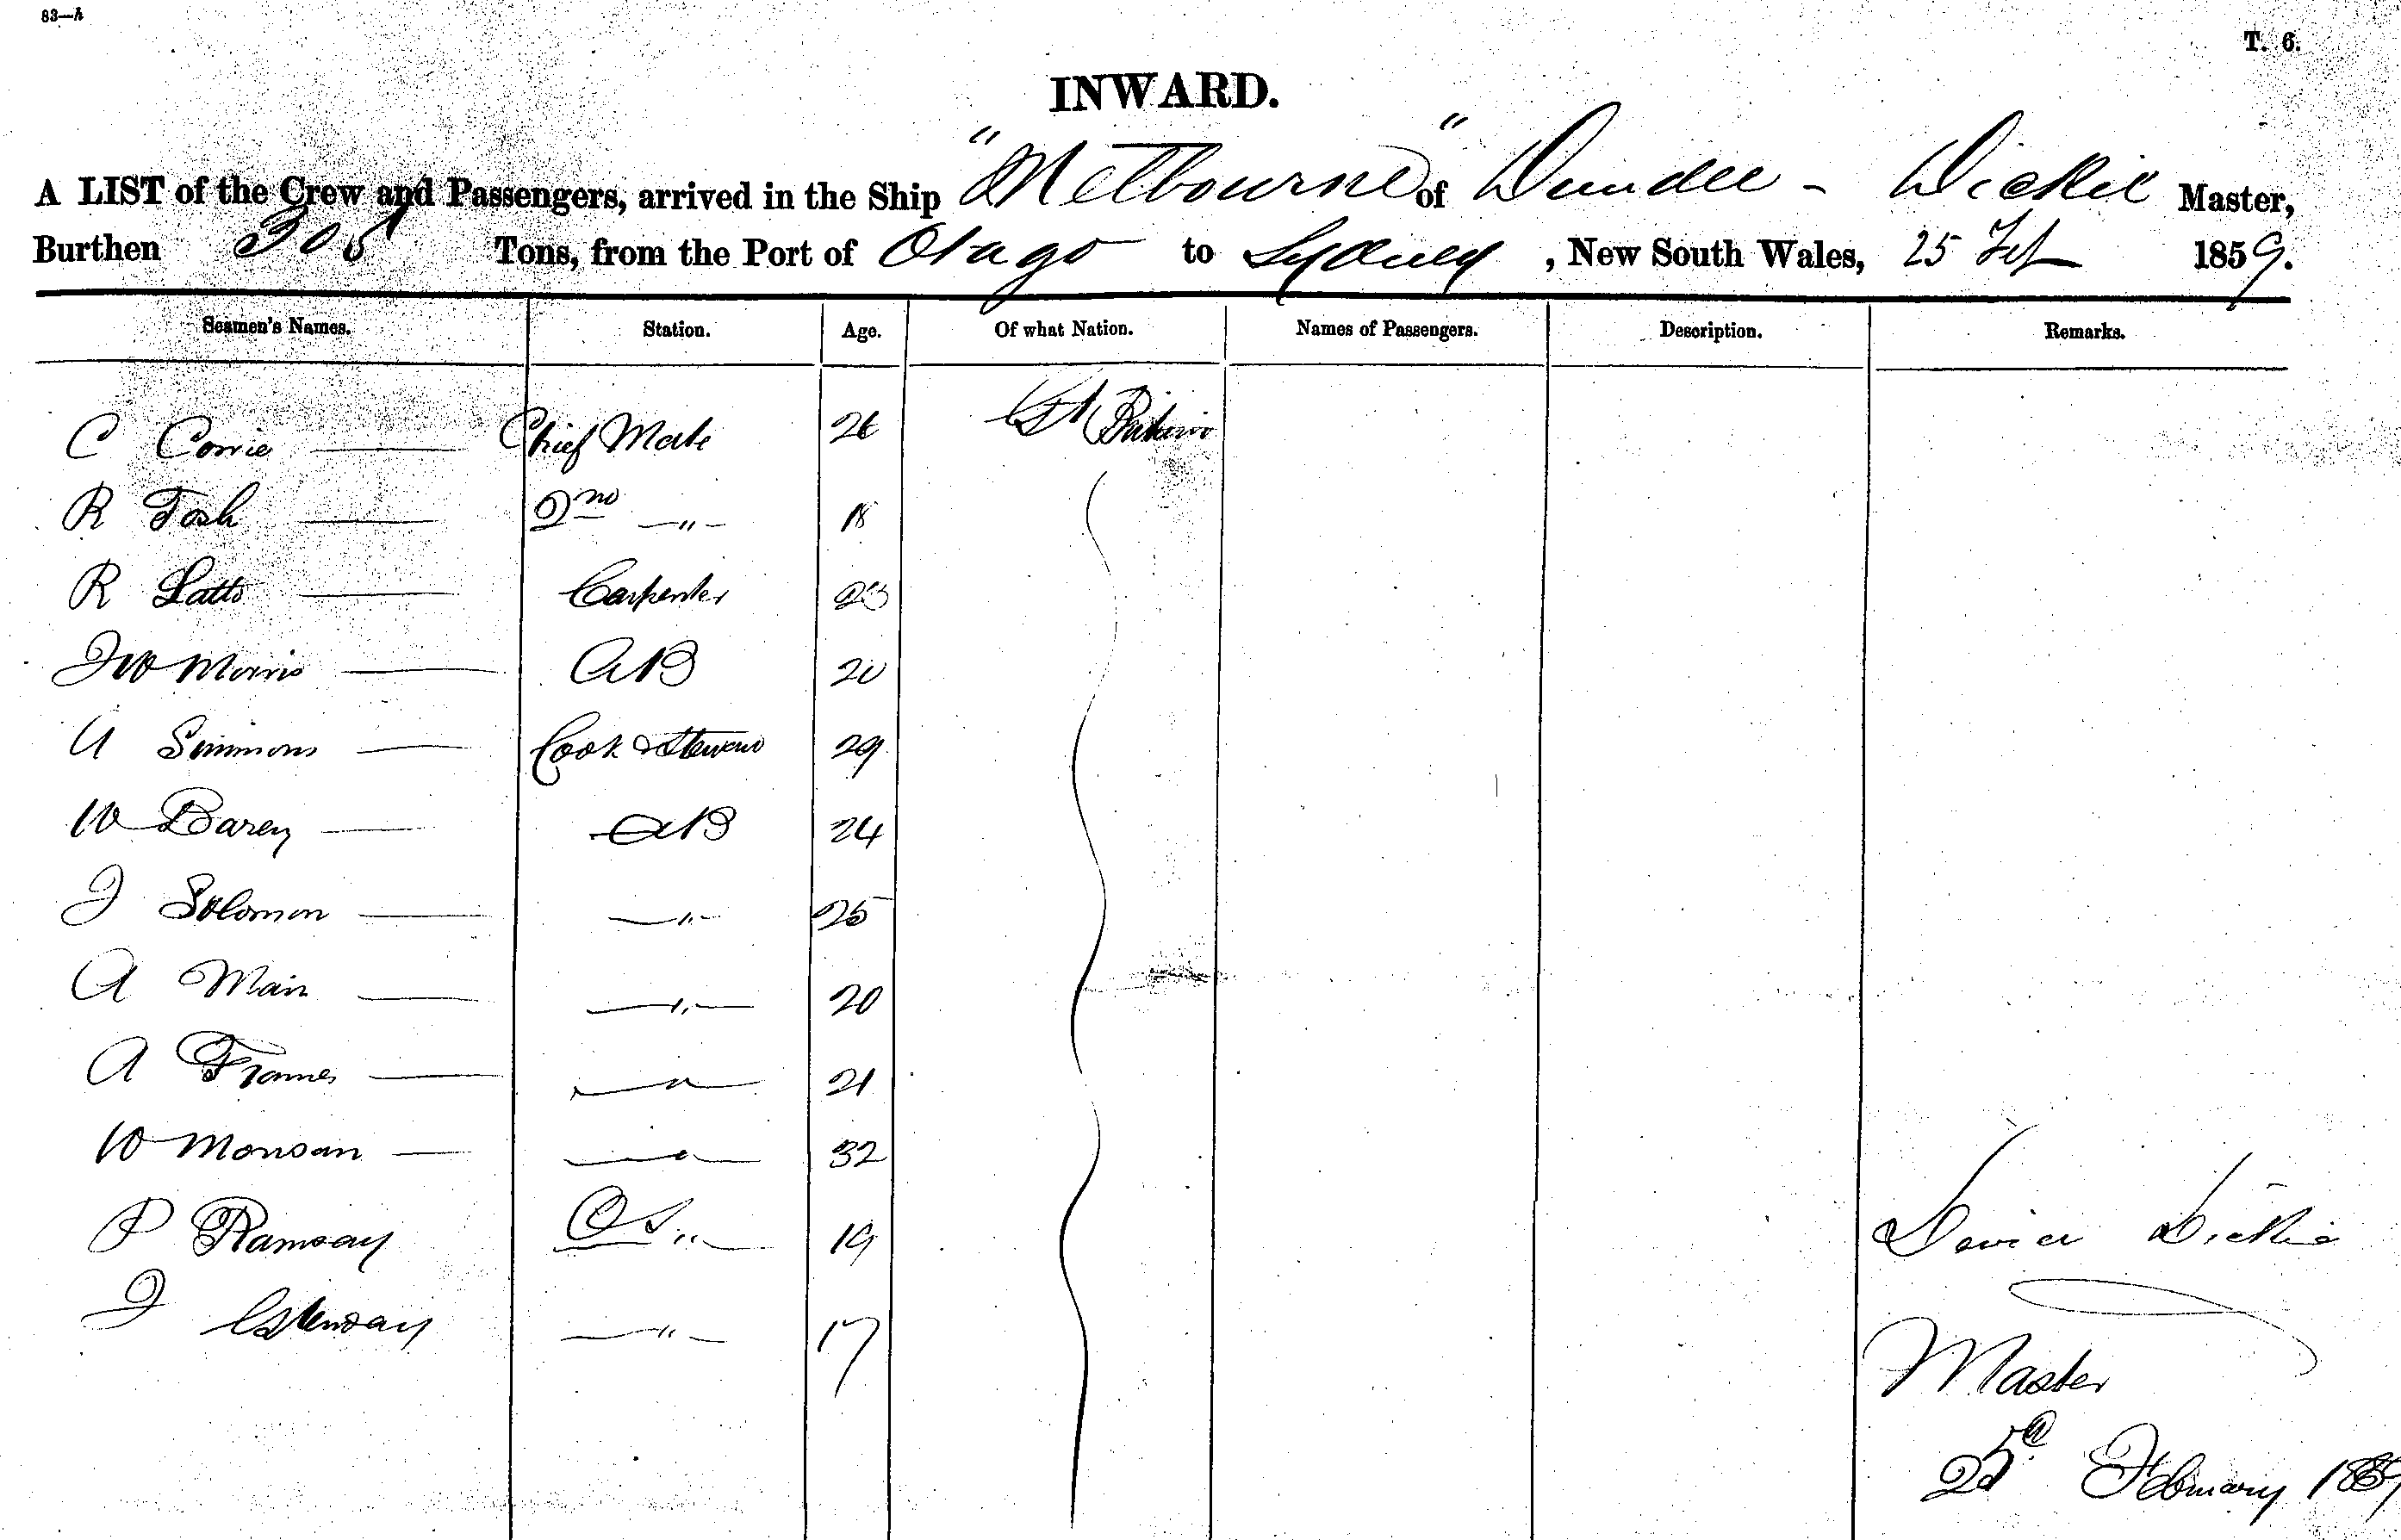 83—h
T. 6.
INWARD.
A LIST of the Crew and Passengers, arrived in the Ship "Melbourne" of Dundee - Dickie Master,
Burthen 305 Tons, from the Port of Otago to Sydney, New South Wales, 25 Feb 1859.
Seamen's Names. Station. Age. Of what Nation. Names of Passengers. Description. Remarks.
C Corrie Chief Mate 26
R Tosh 2nd —"— 18
R Latto Carpenter 23
J W Morris AB 20
A Simmons Cook & Steward 29
W Barey AB 24
J Solomon —"— 25
A Main —"— 20
A Frames —"— 21
W Monsan —"— 32
P Ramsay OS "— 19
J —"— 17
David Dickie
Master
25th February 1859